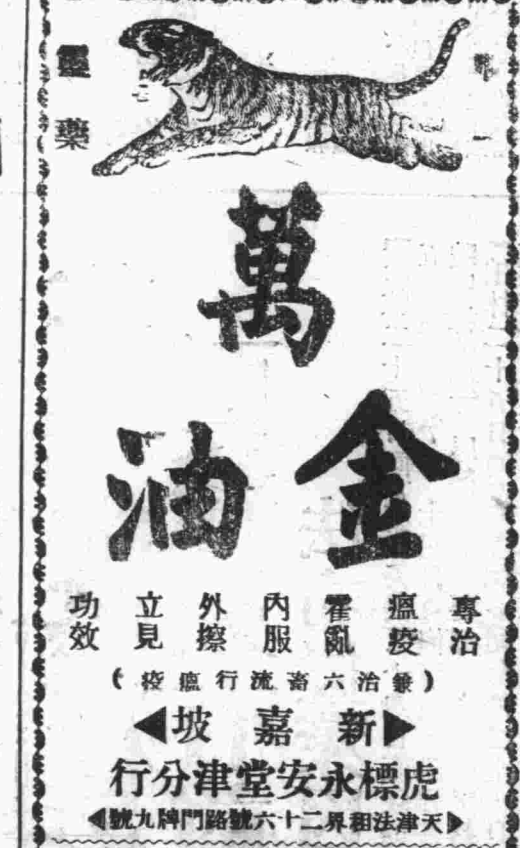 靈藥
萬
金油
專治 瘟疫 霍亂 內服 外擦 立見 功效
(兼治六畜流行瘟疫)
新嘉坡
虎標永安堂津分行
天津法租界二十六號路門牌九號